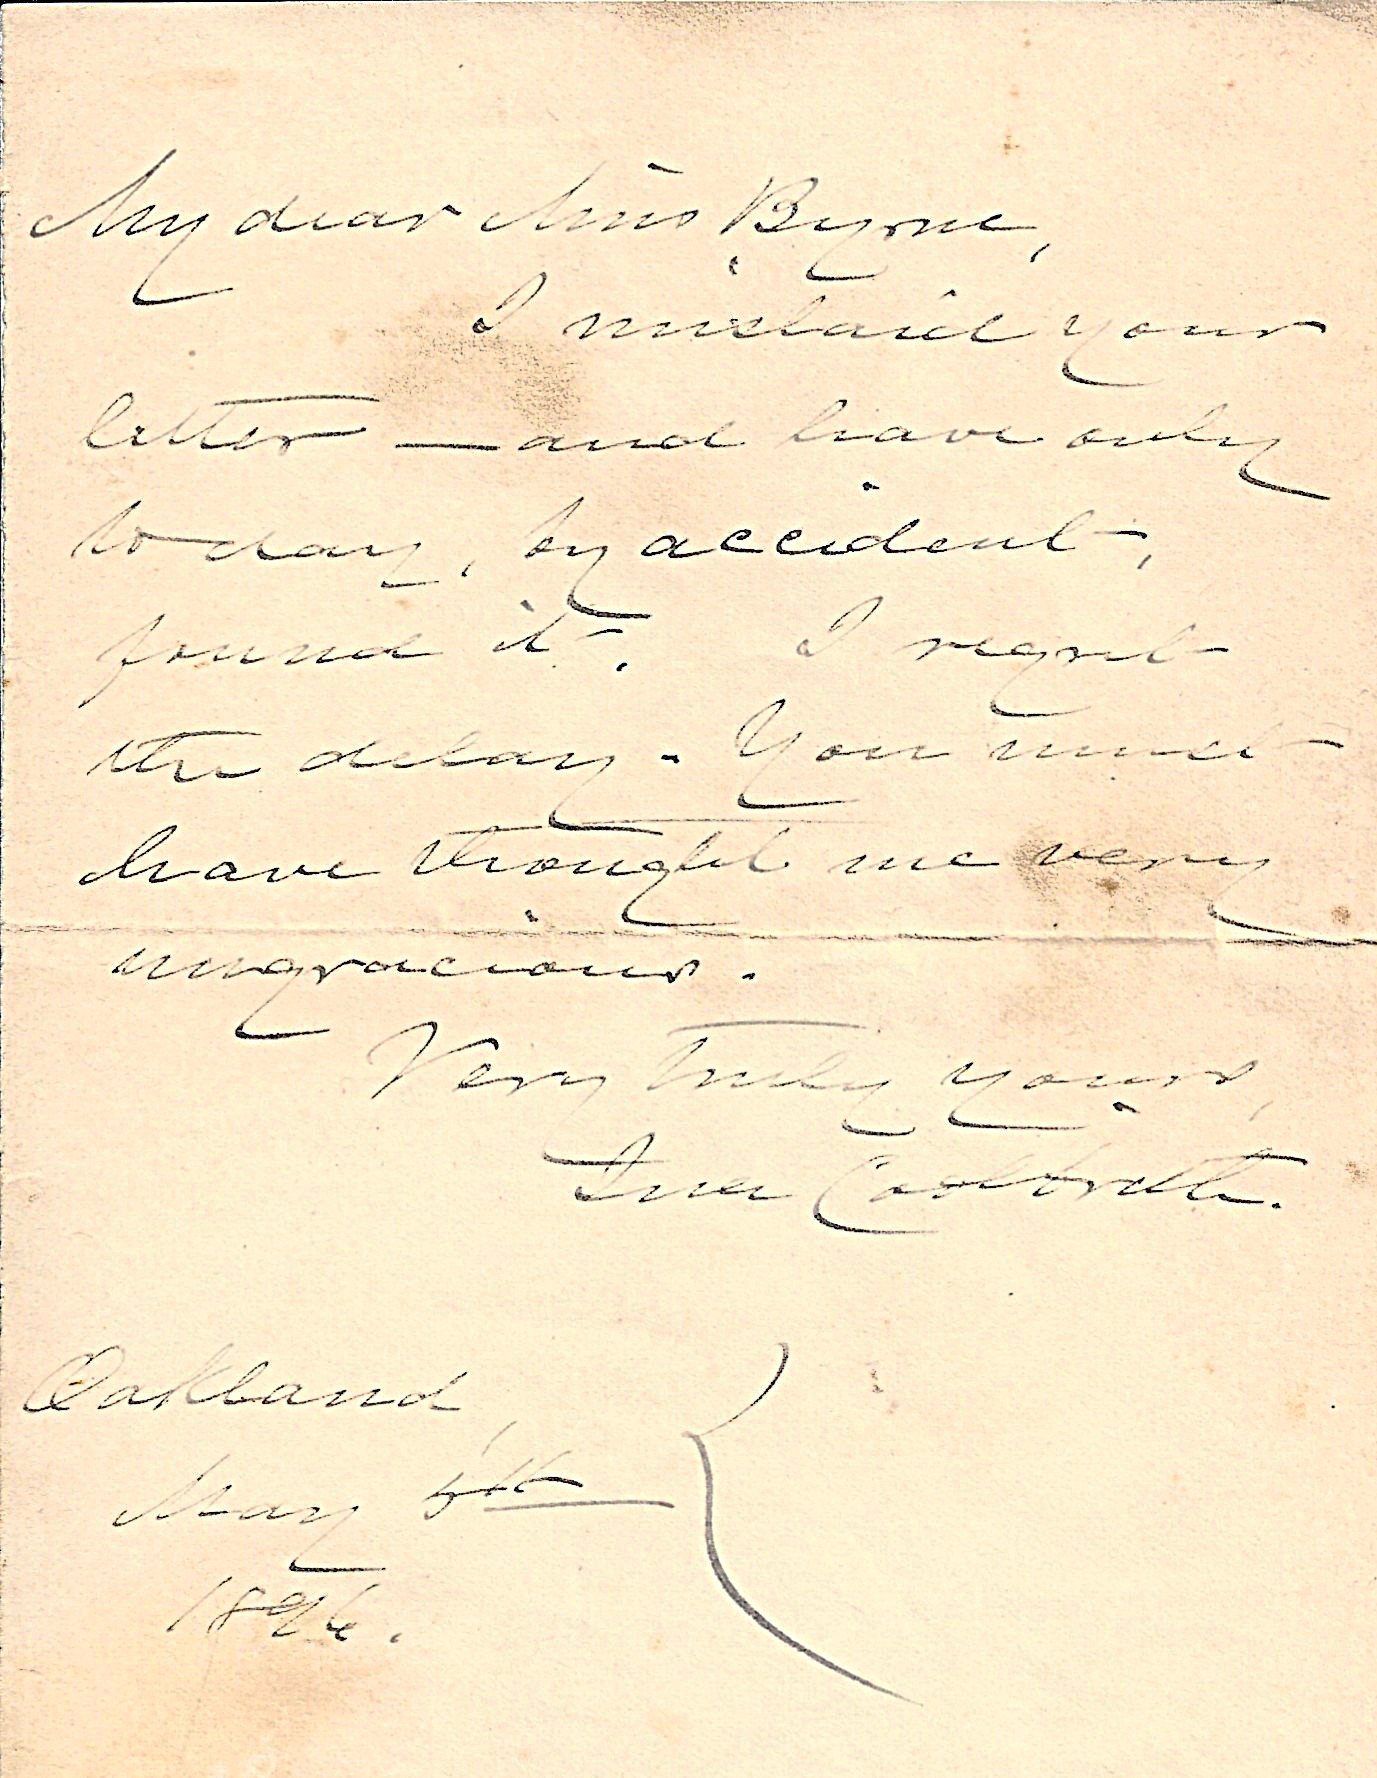 My dear Miss Byrne,
I mislaid your
letter — and have only
to day, by accident,
found it. I regret
the delay. You must
have thought me very
ungracious.
Very truly yours,
Ina Coolbrith.
Oakland,
May 5th
1896.